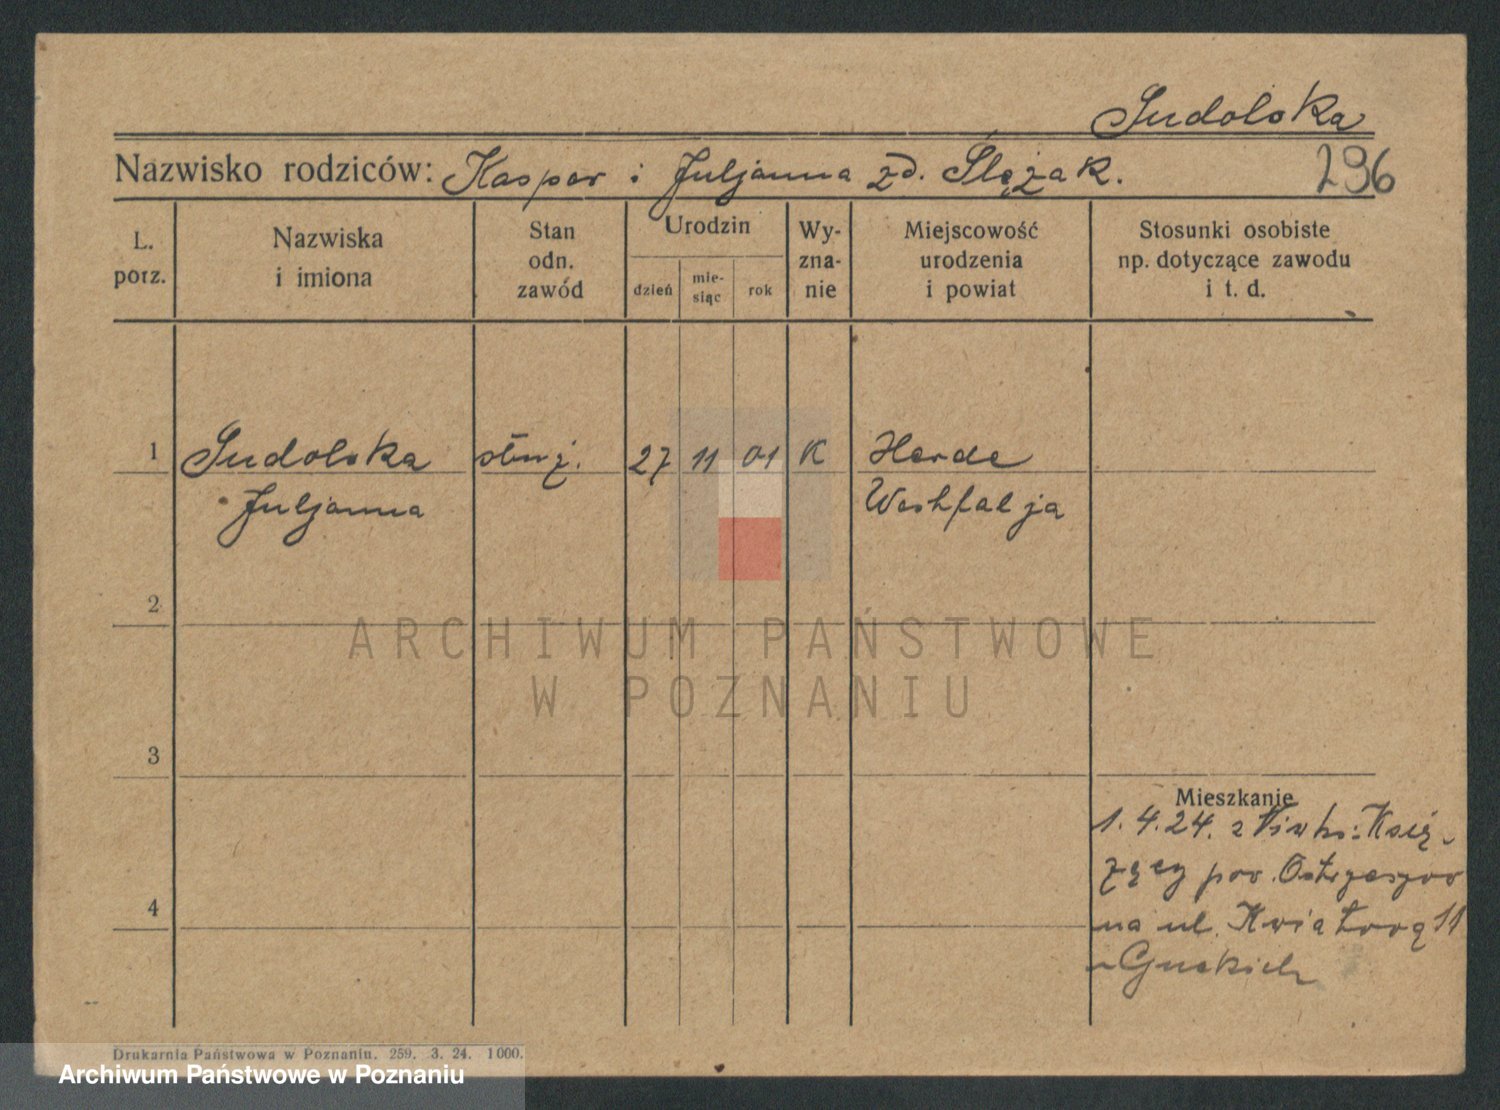 Sudolska
Nazwisko rodziców: Kasper i Juljanna zd. Ślężak.
296
L. porz.
Nazwiska i imiona
Stan odn. zawód
Urodzin
dzień
mie-
siąc
rok
Wy-
zna-
nie
Miejscowość
urodzenia
i powiat
Stosunki osobiste
np. dotyczące zawodu
i t. d.
1 Sudolska służ. 27 11 01 K Herde
Juljanna Westfalja
2
3
4
Mieszkanie
1. 4. 24. z Książ-
pow. Ostrzeszow
na ul. Kwiatową 11
ARCHIWUM PAŃSTWOWE
W POZNANIU
Drukarnia Państwowa w Poznaniu. 259. 3. 24. 1000.
Archiwum Państwowe w Poznaniu